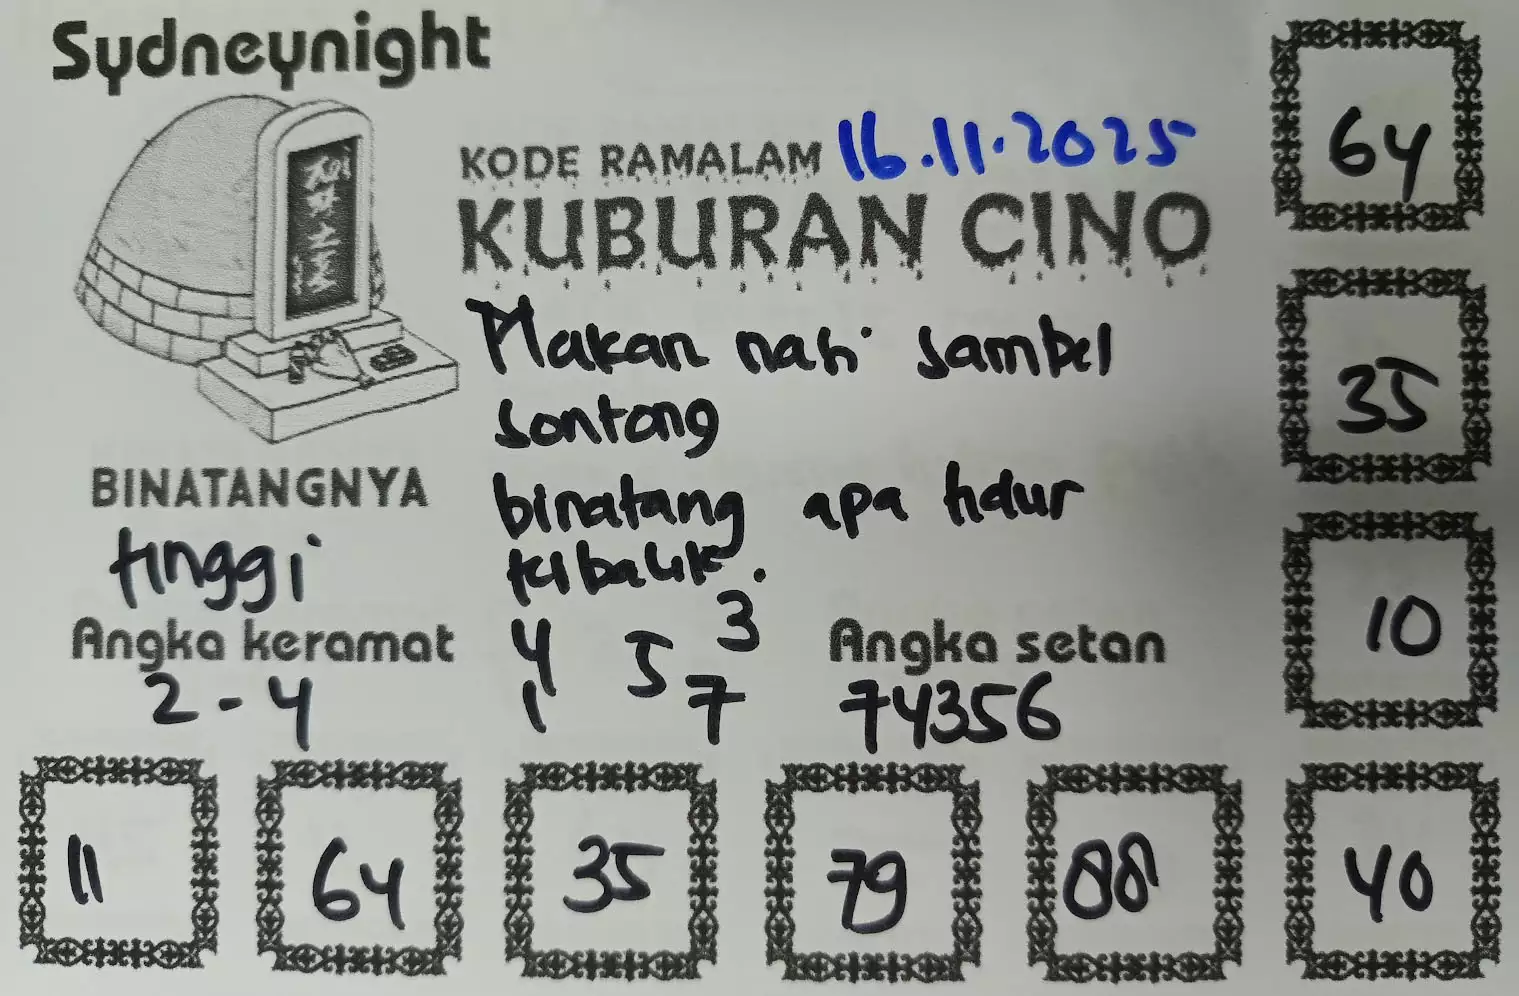 Sydneynight
KODE RAMALAM 16.11.2025
KUBURAN CINO
Makan nasi sambel
sontong
binatang apa tidur
terbalik.
BINATANGNYA
tinggi
Angka keramat
2-4
4 5 3
1 7
Angka setan
74356
64
35
10
11 64 35 79 88 40